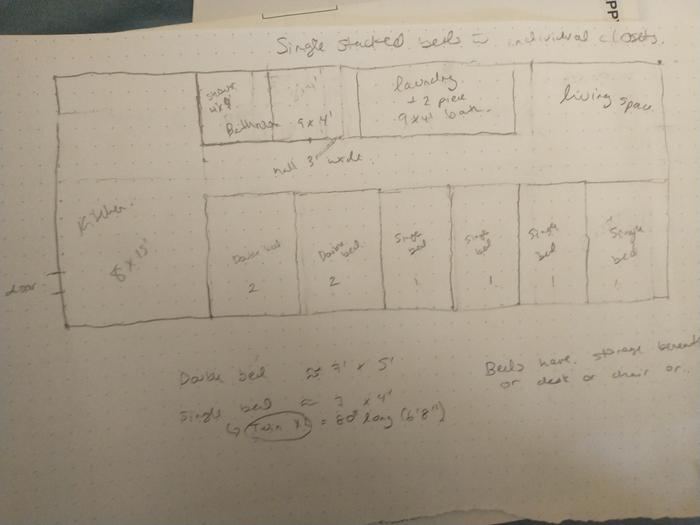 PP
Single stacked beds in individual closets.
shower
4x4
Bathroom 9x4'
laundry
+ 2 piece
9x4' bath.
living space
hall 3' wide.
Kitchen.
8 x 15'
door
Double bed
2
Double bed.
2
Single bed
1
Single bed
1
Single bed
1
Single bed
1
Double bed ≈ 7' x 5'
Single bed ≈ 7 x 4'
↳ Twin XL = 80" long (6'8")
Beds have storage beneath
or desk or chair or..